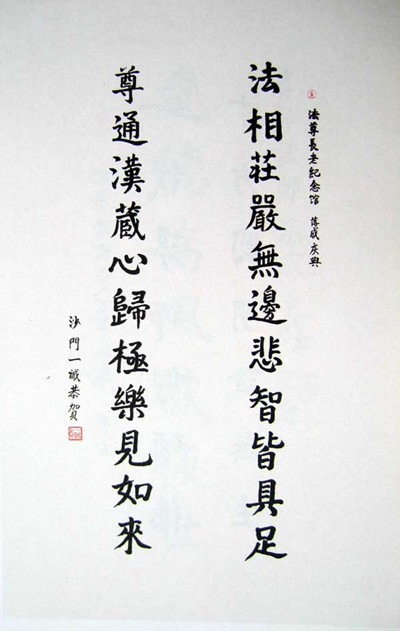 法尊長老紀念馆 落成庆典
法相莊嚴無邊悲智皆具足
尊通漢藏心歸極樂見如來
沙門一诚恭贺